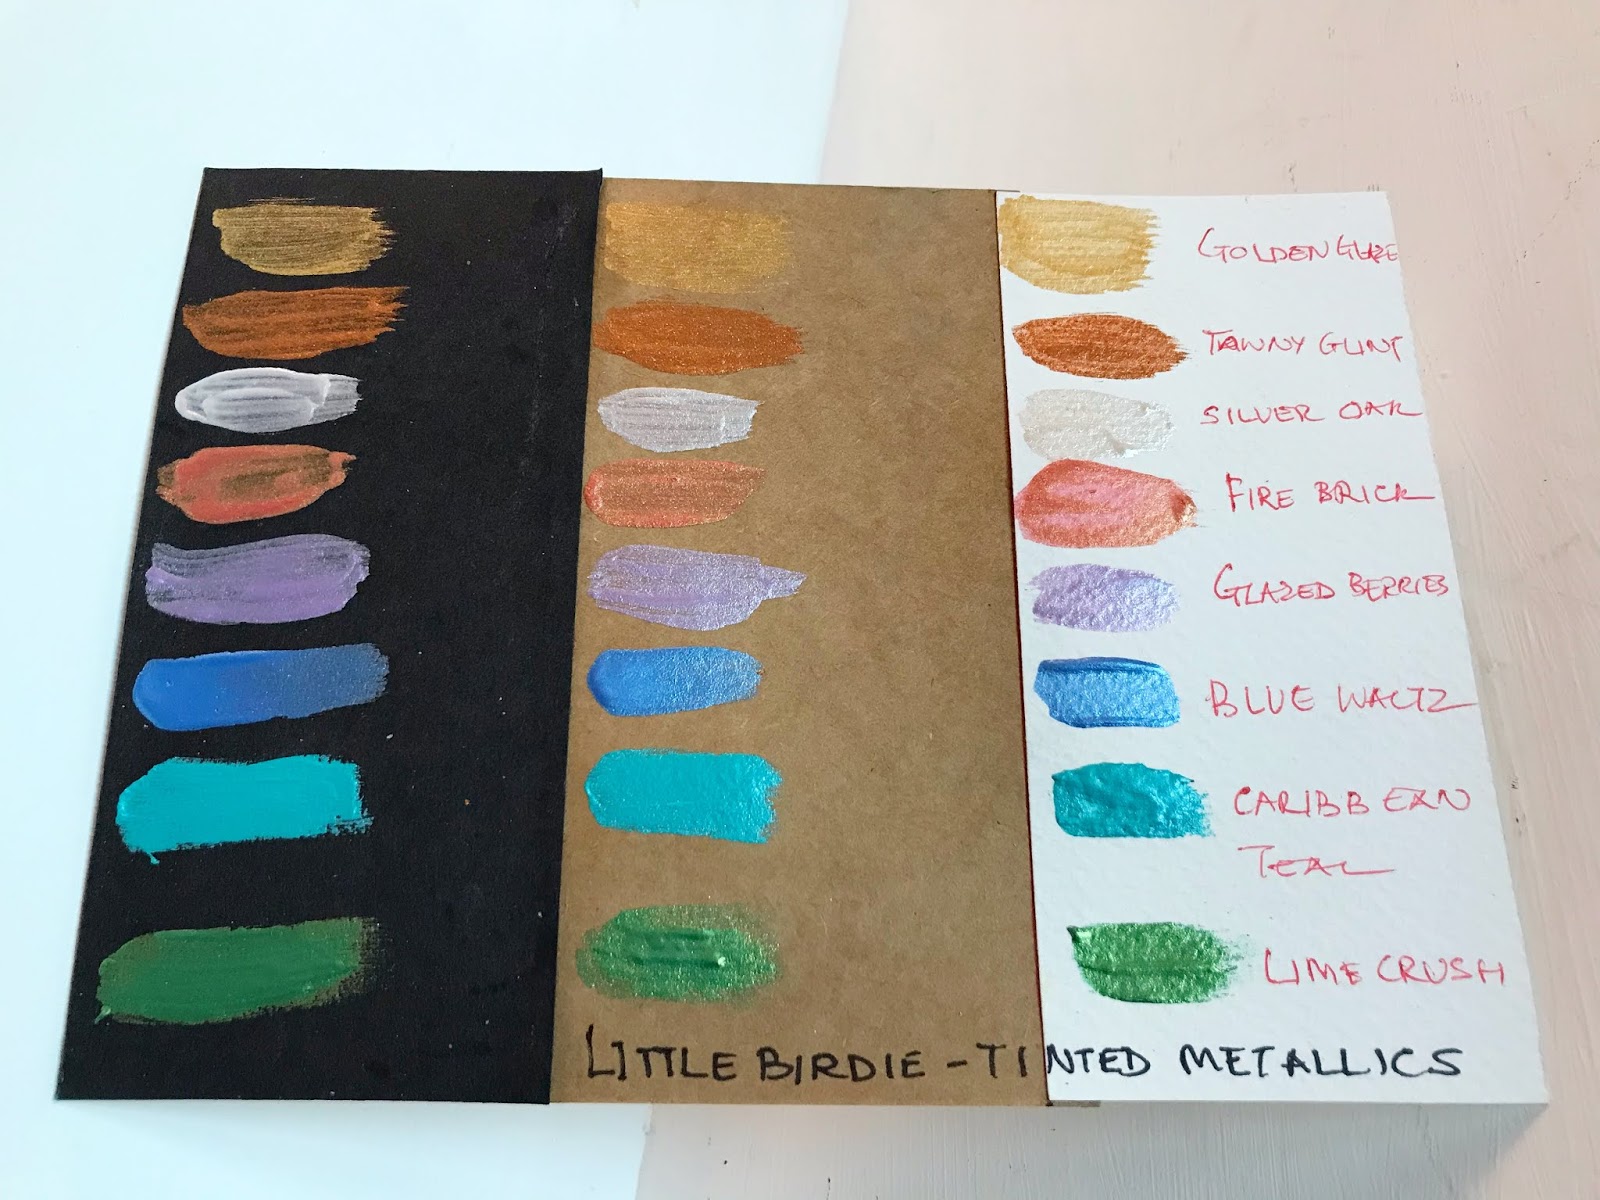 GOLDEN GLAZE
TAWNY GLINT
SILVER OAK
FIRE BRICK
GLAZED BERRIES
BLUE WALTZ
CARIBBEAN
TEAL
LIME CRUSH
LITTLE BIRDIE - TINTED METALLICS